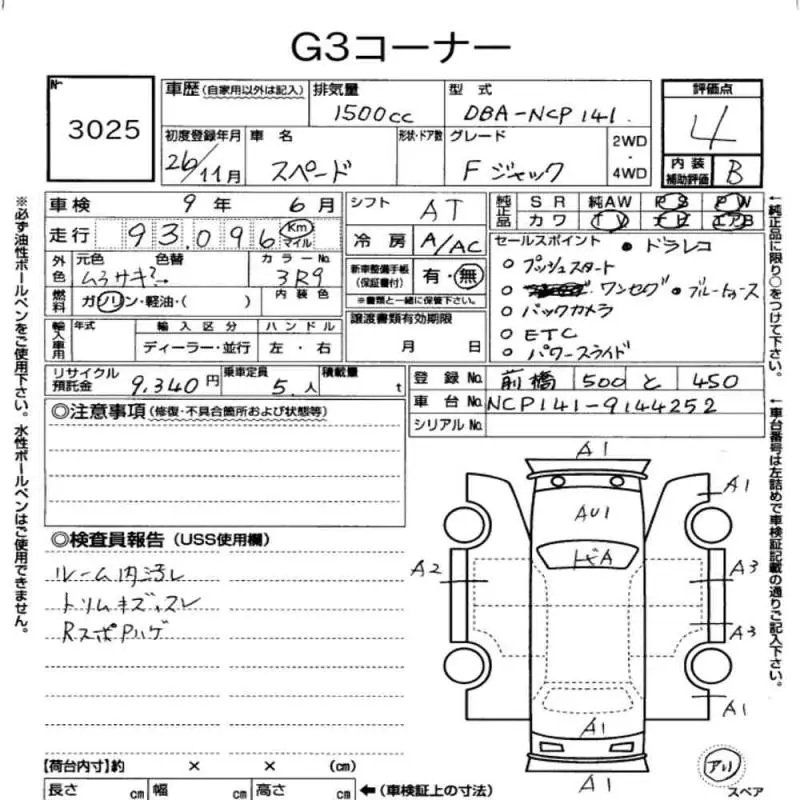 G3コーナー
No
3025
車歴(自家用以外は記入)
排気量
1500cc
型式
DBA-NCP141
評価点
4
初度登録年月
26/11月
車名
スペード
形状・ドア数
グレード
F ジャック
2WD
・
4WD
内装
補助評価
B
車検 9年 6月
シフト
AT
純正品
SR 純AW PS PW
カワ TV ナビ エアB
走行 93.096 Km マイル
冷房 A/AC
セールスポイント ・ドラレコ
○ プッシュスタート
○ ワンセグ ・ブルートゥース
○ バックカメラ
○ ETC
○ パワースライド
外色
元色 色替
ムラサキ?→
カラーNo
3R9
新車整備手帳
(保証書付)
有・無
※書類と一緒に保管下さい。
燃料
ガソリン・軽油・( )
内装色
譲渡書類有効期限
月 日
輸入車用
年式
輸入区分
ハンドル
ディーラー・並行
左・右
リサイクル
預託金
9,340円
乗車定員
5.人
積載量
t
登録No. 前橋 500 と 450
車台No. NCP141-9144252
シリアルNo.
◎注意事項(修復・不具合箇所および状態等)
◎検査員報告(USS使用欄)
ルーム内汚レ
トリムキズ、スレ
RスポPハゲ
A1
AU1
トビA
A1
A2
A3
A3
A1
A1
A1
アリ
スペア
【荷台内寸】約 × × (cm)
長さ cm 幅 cm 高さ cm ←(車検証上の寸法)
※必ず油性ボールペンをご使用下さい。水性ボールペンはご使用できません。
←純正品に限り○をつけて下さい。
←車台番号は左詰めで車検証記載の通りご記入下さい。